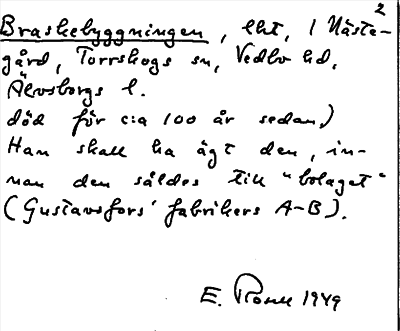 2
Braskebyggningen, lht, / Näste-
gård, Torrskogs sn, Vedbo hd,
Älvsborgs l.
död för c:a 100 år sedan.)
Han skall ha ägt den, in-
nan den såldes till "bolaget"
(Gustavsfors' fabrikers A-B).
E. 1949